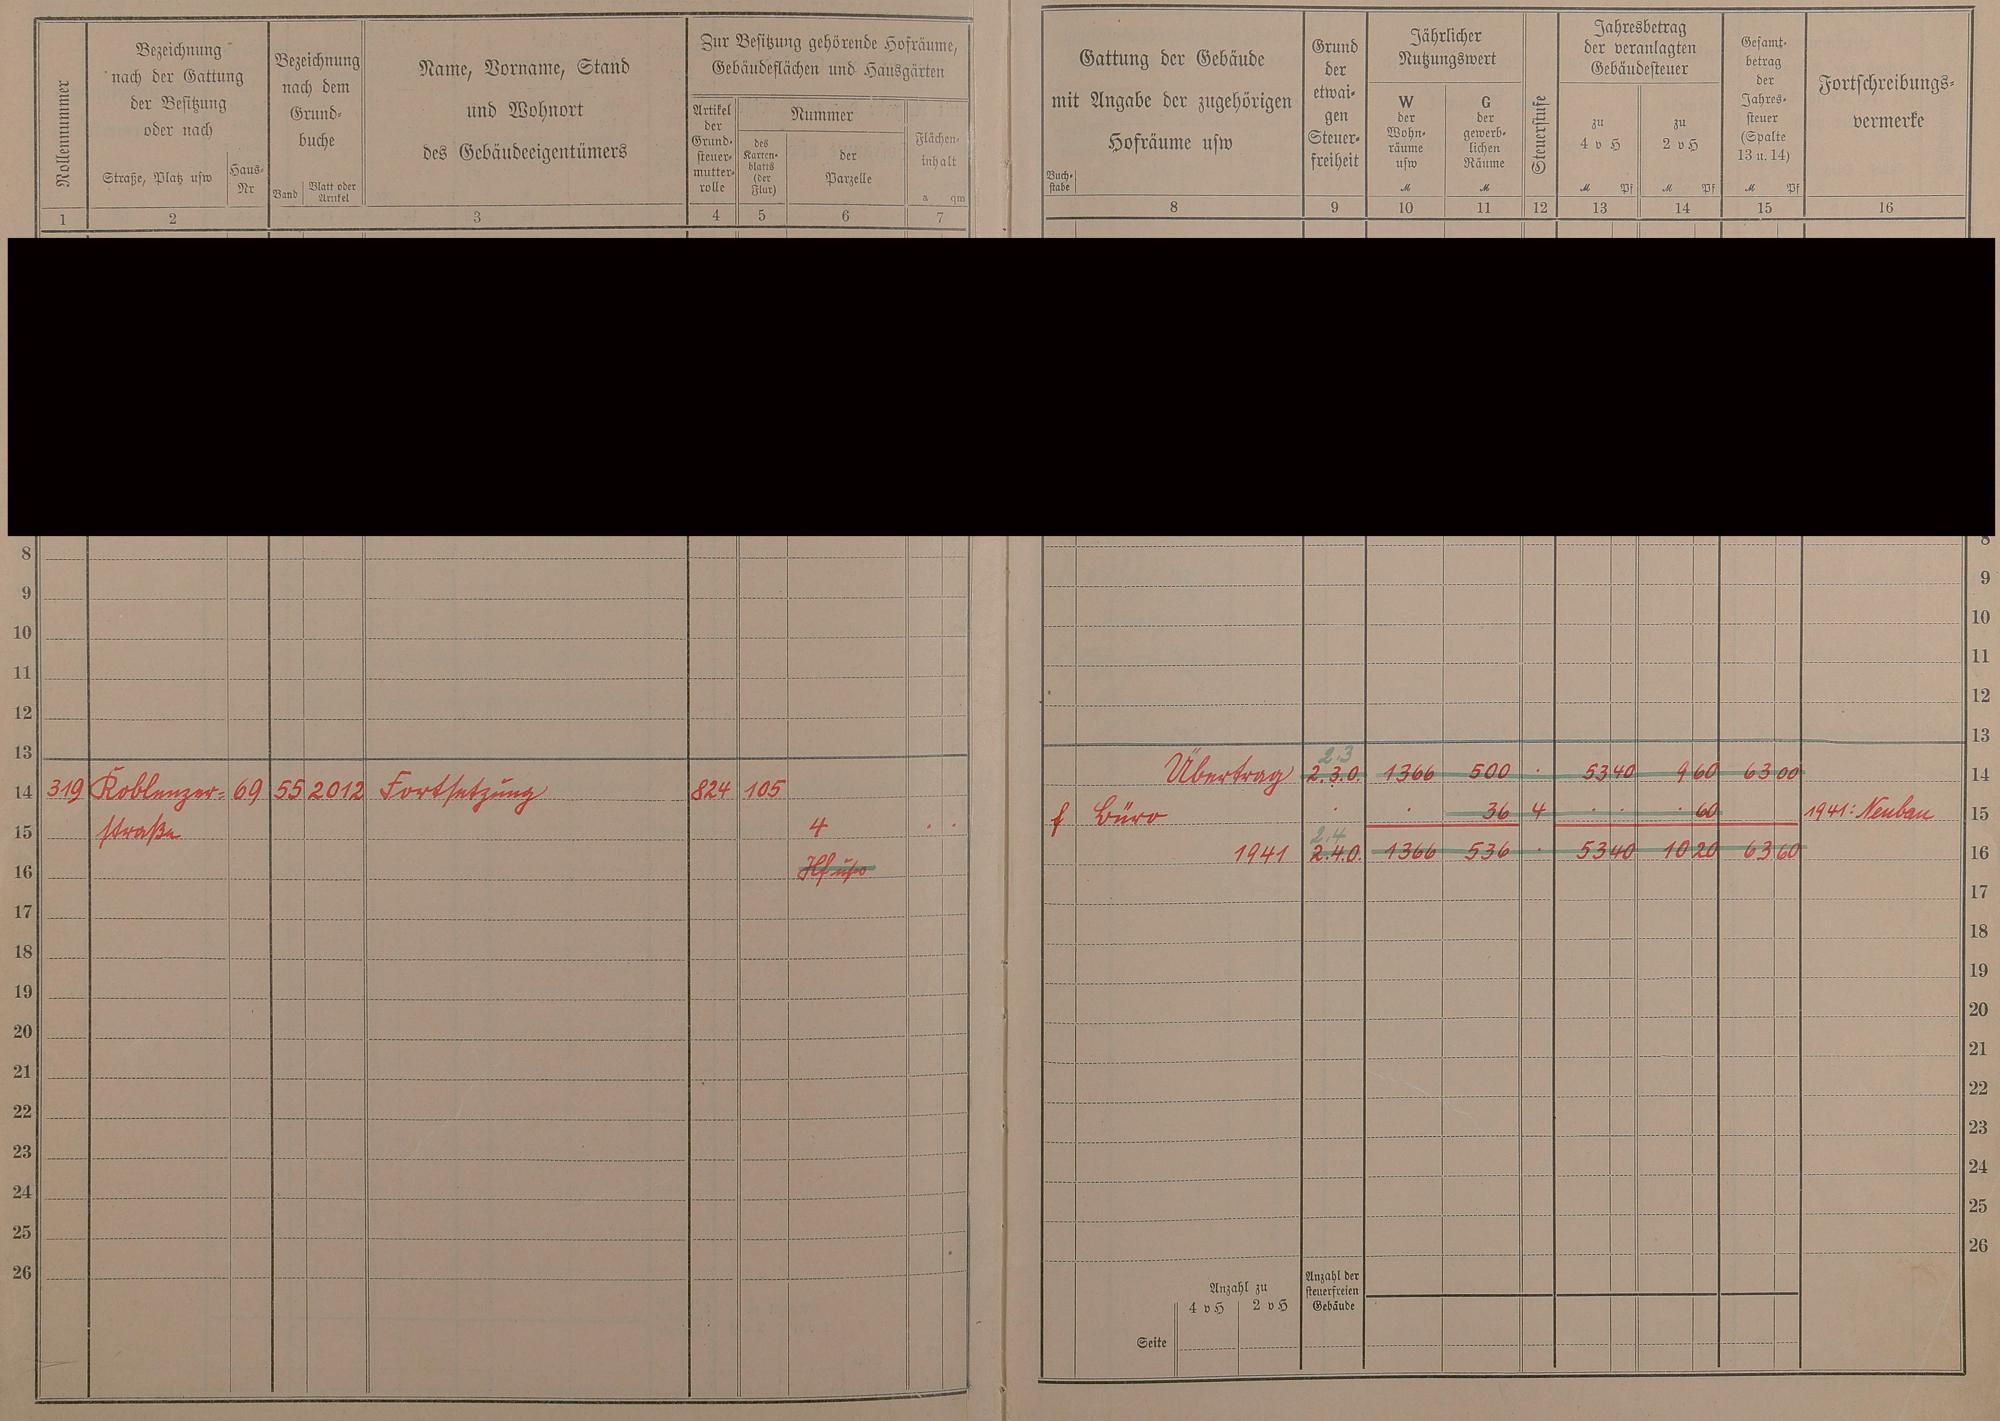 Rollennummer
Bezeichnung
nach der Gattung
der Besitzung
oder nach
Straße, Platz usw
Haus-
Nr
Bezeichnung
nach dem
Grund-
buche
Band
Blatt oder
Artikel
Name, Vorname, Stand
und Wohnort
des Gebäudeeigentümers
Zur Besitzung gehörende Hofräume,
Gebäudeflächen und Hausgärten
Artikel
der
Grund-
steuer-
mutter-
rolle
Nummer
des
Karten-
blatts
(der
Flur)
der
Parzelle
Flächen-
inhalt
a qm
1 2 3 4 5 6 7
Gattung der Gebäude
mit Angabe der zugehörigen
Hofräume usw
Buch-
stabe
Grund
der
etwai-
gen
Steuer-
freiheit
Jährlicher
Nutzungswert
W
der
Wohn-
räume
usw
M
G
der
gewerb-
lichen
Räume
M
Steuerstufe
Jahresbetrag
der veranlagten
Gebäudesteuer
zu
4 v H
M Pf
zu
2 v H
M Pf
Gesamt-
betrag
der
Jahres-
steuer
(Spalte
13 u. 14)
M Pf
Fortschreibungs-
vermerke
8 9 10 11 12 13 14 15 16
8
9
10
11
12
13
14 319 Koblenzer- 69 55 2012 Fortsetzung 824 105
15 straße 4 . .
16 Hf usw
17
18
19
20
21
22
23
24
25
26
8
9
10
11
12
13
2.3
Übertrag 2.3.0. 1366 500 . 53 40 9 60 63 00 14
f Büro . . 36 4 . . . 60 1941: Neubau 15
2.4
1941 2.4.0. 1366 536 . 53 40 10 20 63 60 16
17
18
19
20
21
22
23
24
25
26
Anzahl zu
4 v H 2 v H
Anzahl der
steuerfreien
Gebäude
Seite